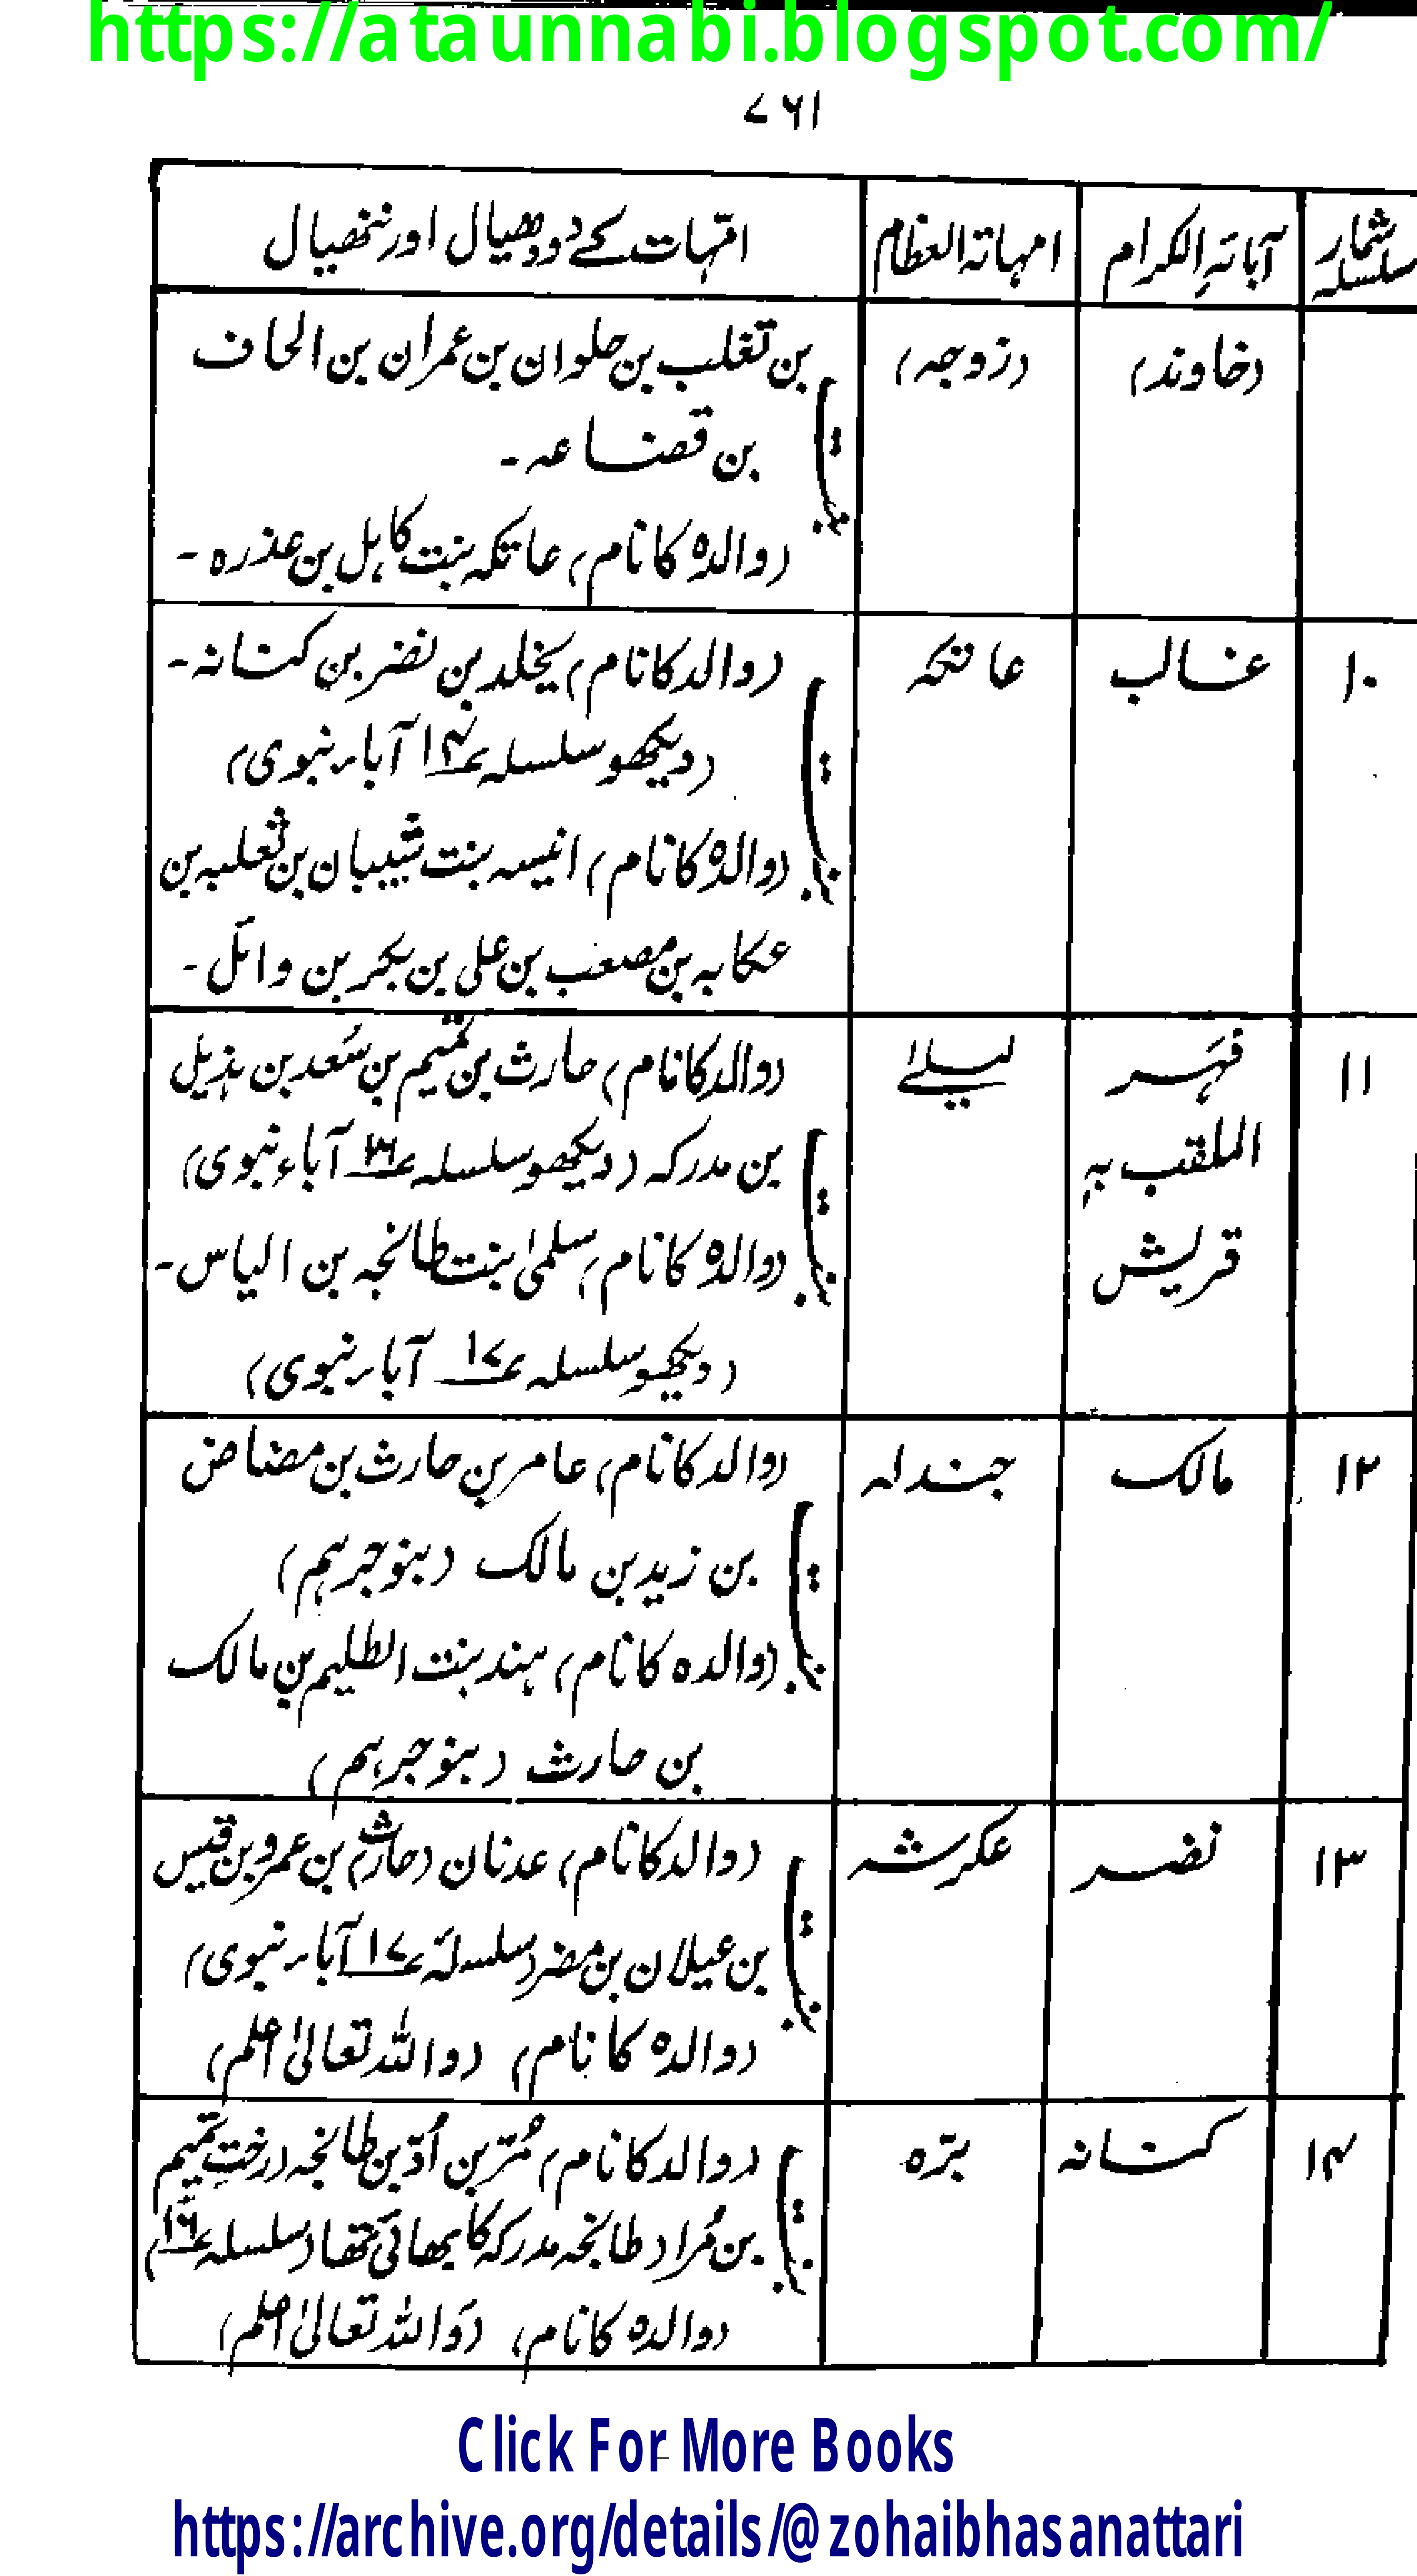 https://ataunnabi.blogspot.com/
۷۶۱
شمار سلسلہ
آبائہِ الکرام
امہاتۃ العظام
امّہات کے دودھیال اور ننھیال
(خاوند)
(زوجہ)
بن تغلب بن حلوان بن عمران بن الحاف
بن قضاعہ ۔
(والدہ کا نام) عاتکہ بنت کاہل بن عذرہ ۔
۱۰
غالب
عاتکہ
(والد کا نام) یخلد بن نضر بن کنانہ ۔
(دیکھو سلسلہ ؏۱۴ آباء نبوی)
(والدہ کا نام) انیسہ بنت شیبان بن ثعلبہ بن
عکابہ بن مصعب بن علی بن بکر بن وائل ۔
۱۱
فہر
الملقب بہٖ
قریش
لیلےٰ
(والد کا نام) حارث بن تمیم بن سعد بن ہذیل
بن مدرکہ (دیکھو سلسلہ آباء نبوی)
(والدہ کا نام) سلمیٰ بنت طابخہ بن الیاس ۔
(دیکھو سلسلہ ؏۱۷ آباء نبوی)
۱۲
مالک
جندلہ
(والد کا نام) عامر بن حارث بن مضاض
بن زید بن مالک (بنو جرہم)
(والدہ کا نام) ہند بنت الظلیم بن مالک
بن حارث (بنو جرہم)
۱۳
نضر
عکرشہ
(والد کا نام) عدنان (حارث) بن عمرو بن قیس
بن عیلان بن مضر (سلسلہ ؏۱۷ آباء نبوی)
(والدہ کا نام) (واللہ تعالیٰ اعلم)
۱۴
کنانہ
برّہ
(والد کا نام) مُرّ بن اُدّ بن طابخہ (رختِ تمیم
بن مُر) (طابخہ مدرکہ کا بھائی تھا (سلسلہ ؏۱۶)
(والدہ کا نام) (واللہ تعالیٰ اعلم)
Click For More Books
https://archive.org/details/@zohaibhasanattari